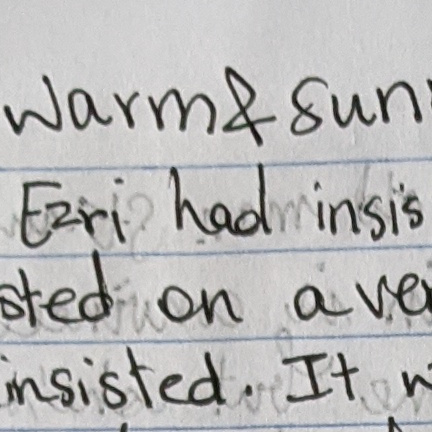 Warm & sun
Ezri had insis
sted on a ve
insisted. It